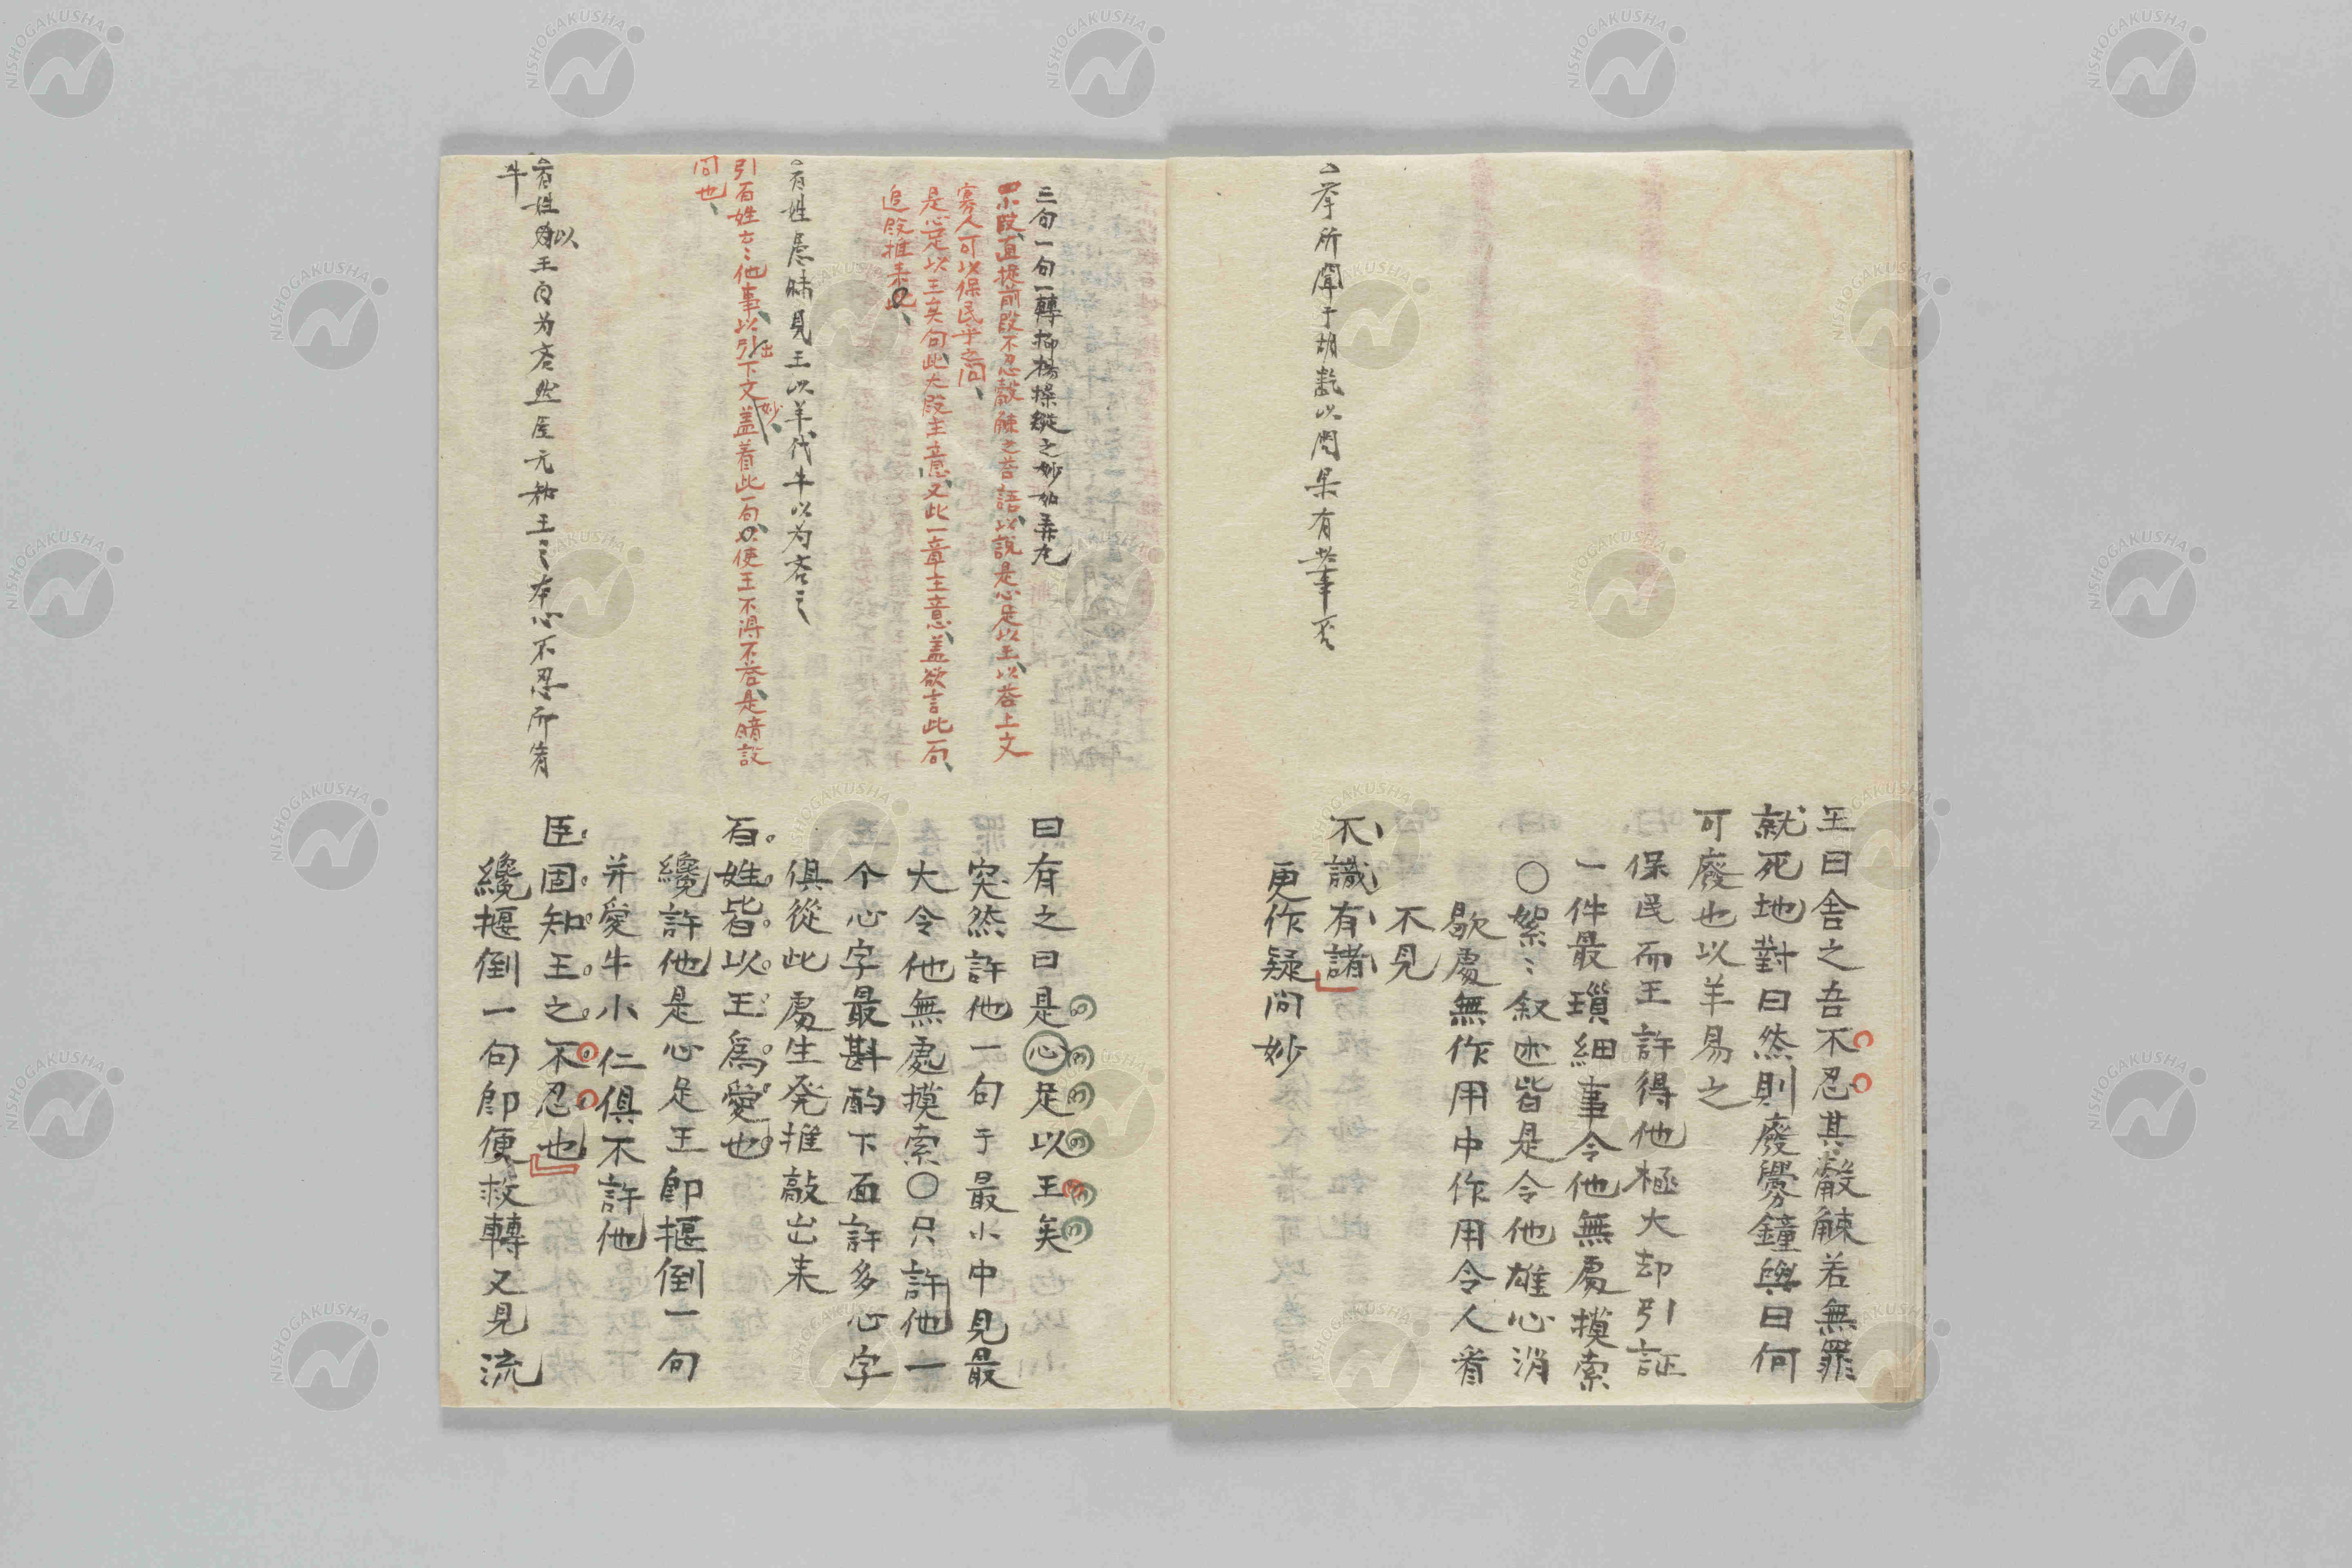 王曰舎之吾不忍其觳觫若無罪
就死地對曰然則廢釁鐘與曰何
可廢也以羊易之
保民而王許得他極大却引証
一件最瑣細事令他無處摸索
○絮〻叙述皆是令他雄心消
歇處無作用中作用令人看
不見
不識有諸
更作疑问妙
△挙所聞于胡齕以問果有此事否
曰有之曰是心足以王矣
突然許他一句于最小中見最
大令他無處摸索○只許他一
个心字最斟酌下面許多心字
俱從此處生発推敲出来
百姓皆以王爲愛也
纔許他是心足王即揠倒一句
并愛牛小仁俱不許他
臣固知王之不忍也
纔揠倒一句即便救轉又見流
三句一句一轉抑揚操縦之妙如弄丸
段直提前段不忍觳觫之昔語以説是心足以王以荅上文
寡人可以保民乎之问
是心足以王矣句此大段主意又此一章主意盖欲言此一句
追段推来
百姓愚昧見王以羊代牛以为吝之
引百姓云〻他事以引出下文妙盖着此一句以使王不得不荅是暗設
问也
百姓以王曰为吝然臣元知王之本心不忍所宰
牛
NISHOGAKUSHA